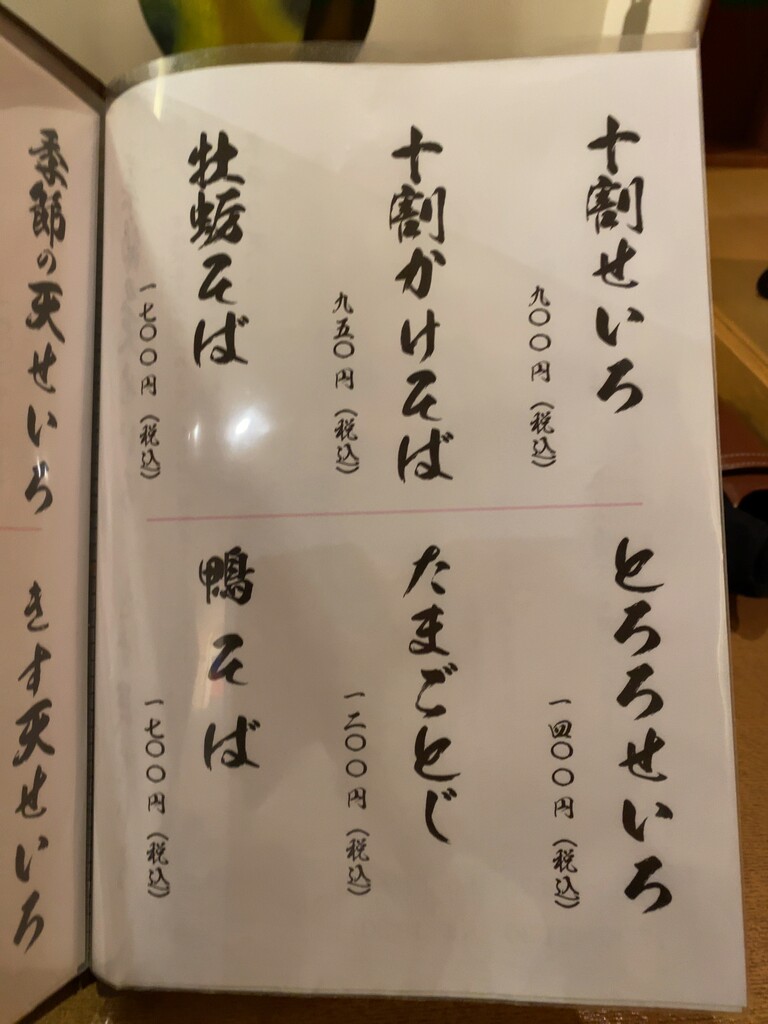 十割せいろ
九〇〇円（税込）
十割かけそば
九五〇円（税込）
牡蛎そば
一七〇〇円（税込）
とろろせいろ
一四〇〇円（税込）
たまごとじ
一二〇〇円（税込）
鴨そば
一七〇〇円（税込）
季節の天せいろ
きす天せいろ